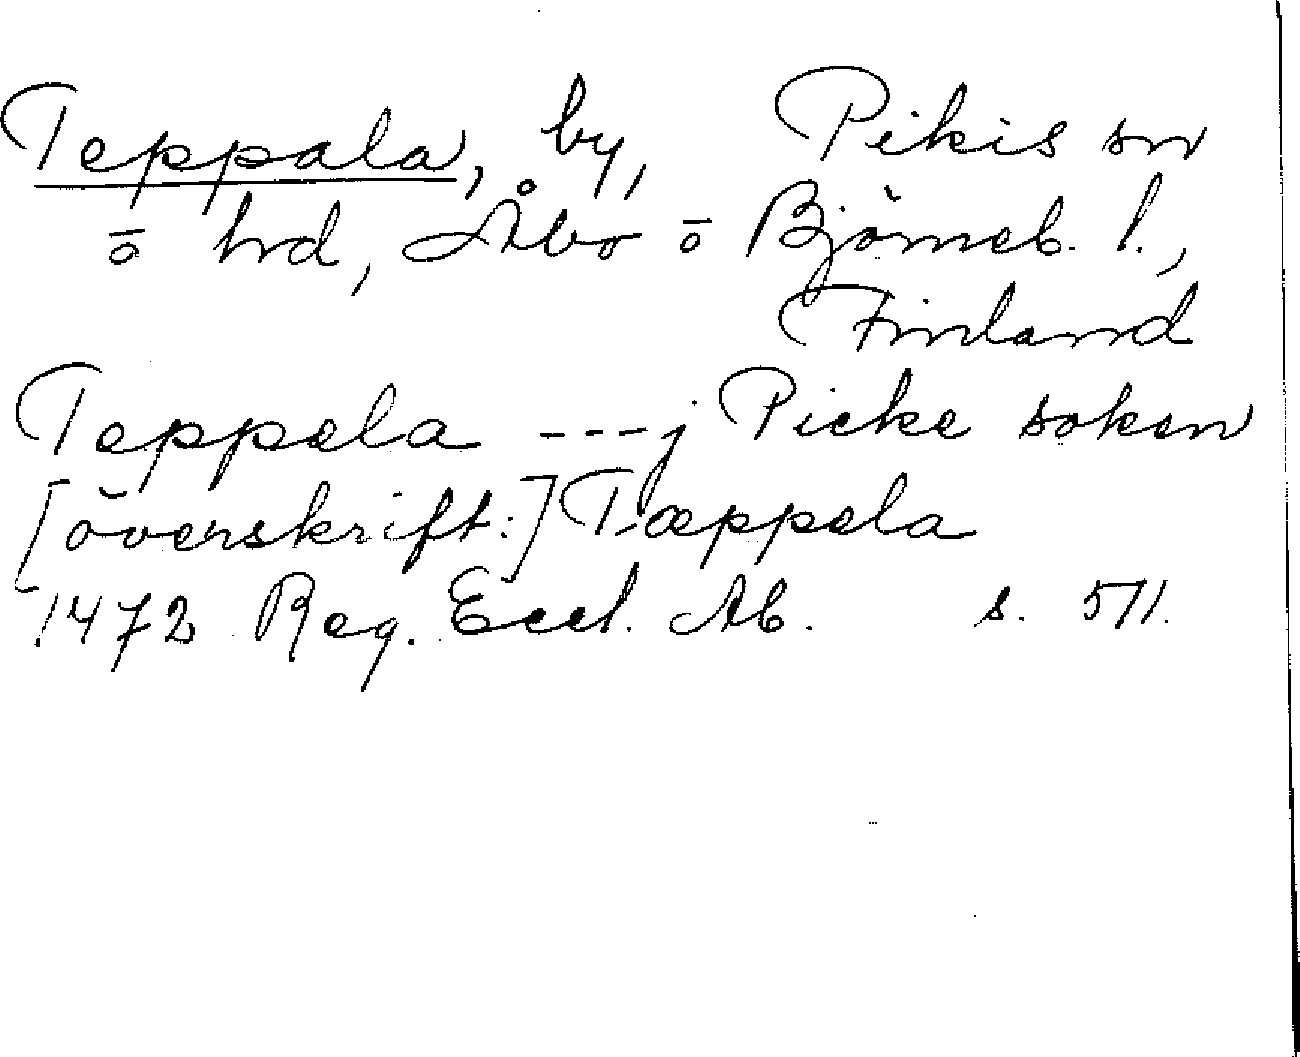 Teppala, by, Pikis sn
ō hd, Åbo ō Björneb. l.,
Finland
Teppela ---j Picke soken
[överskrift:] Tæppela
1472 Reg. Eccl. Ab. s. 571.